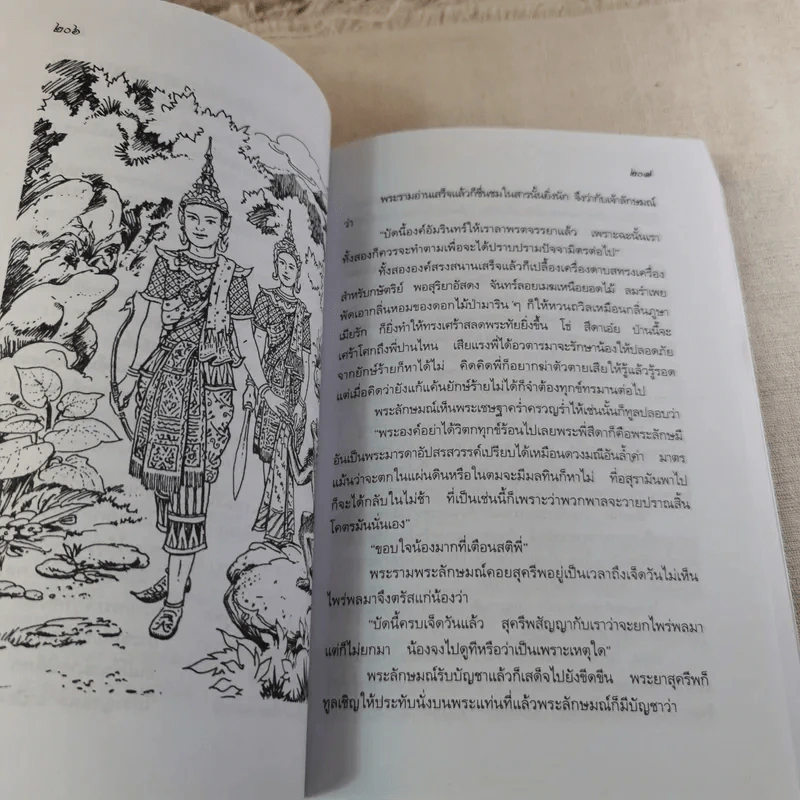 ๒๐๖
๒๐๗
พระรามอ่านเสร็จแล้วก็ชื่นชมในสารนั้นยิ่งนัก จึงว่ากับเจ้าลักษมณ์
ว่า
"บัดนี้องค์อัมรินทร์ให้เราลาพรตจรรยาแล้ว เพราะฉะนั้นเรา
ทั้งสองก็ควรจะทำตามเพื่อจะได้ปราบปรามปัจจามิตรต่อไป"
ทั้งสององค์สรงสนานเสร็จแล้วก็เปลื้องเครื่องดาบสทรงเครื่อง
สำหรับกษัตริย์ พอสุริยาอัสดง จันทร์ลอยเมฆเหนือยอดไม้ ลมรำเพย
พัดเอากลิ่นหอมของดอกไม้ป่ามาริน ๆ ก็ให้หวนถวิลเหมือนกลิ่นภูษา
เมียรัก ก็ยิ่งทำให้ทรงเศร้าสลดพระทัยยิ่งขึ้น โอ่ สีดาเอ๋ย ป่านนี้จะ
เศร้าโศกถึงพี่ปานไหน เสียแรงพี่ได้อวตารมาจะรักษาน้องให้ปลอดภัย
จากยักษ์ร้ายก็หาได้ไม่ คิดคิดพี่ก็อยากฆ่าตัวตายเสียให้รู้แล้วรู้รอด
แต่เมื่อคิดว่ายังแก้แค้นยักษ์ร้ายไม่ได้ก็จำต้องทุกข์ทรมานต่อไป
พระลักษมณ์เห็นพระเชษฐาคร่ำครวญร่ำไห้เช่นนั้นก็ทูลปลอบว่า
"พระองค์อย่าได้วิตกทุกข์ร้อนไปเลยพระพี่สีดาก็คือพระลักษมี
อันเป็นพระมารดาอัปสรสวรรค์เปรียบได้เหมือนดวงมณีอันล้ำค่า มาตร
แม้นว่าจะตกในแผ่นดินหรือในตมจะมีมลทินก็หาไม่ ที่อสุรามันพาไป
ก็จะได้กลับในไม่ช้า ที่เป็นเช่นนี้ก็เพราะว่าพวกพาลจะวายปราณสิ้น
โคตรมันนั่นเอง"
"ขอบใจน้องมากที่เตือนสติพี่"
พระรามพระลักษมณ์คอยสุครีพอยู่เป็นเวลาถึงเจ็ดวันไม่เห็น
ไพร่พลมาจึงตรัสแก่น้องว่า
"บัดนี้ครบเจ็ดวันแล้ว สุครีพสัญญากับเราว่าจะยกไพร่พลมา
แต่ก็ไม่ยกมา น้องจงไปดูทีหรือว่าเป็นเพราะเหตุใด"
พระลักษมณ์รับบัญชาแล้วก็เสด็จไปยังขีดขีน พระยาสุครีพก็
ทูลเชิญให้ประทับนั่งบนพระแท่นที่แล้วพระลักษมณ์ก็มีบัญชาว่า